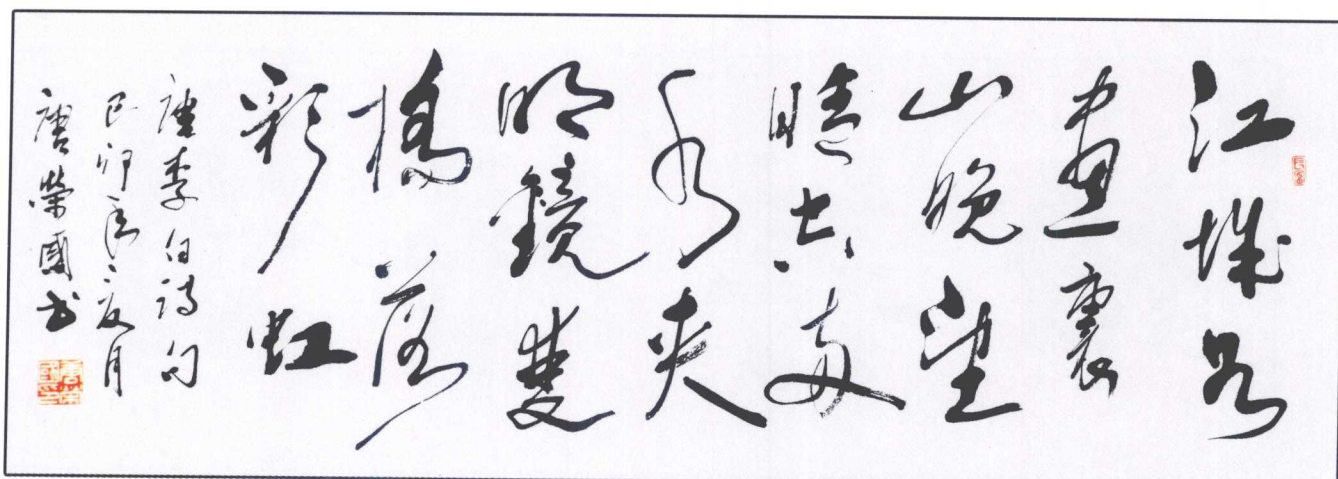 江城如
畫裏
山晚望
晴空兩
水夾
明鏡雙
橋落
彩虹
唐李白詩句
己卯年夏月
唐榮國書